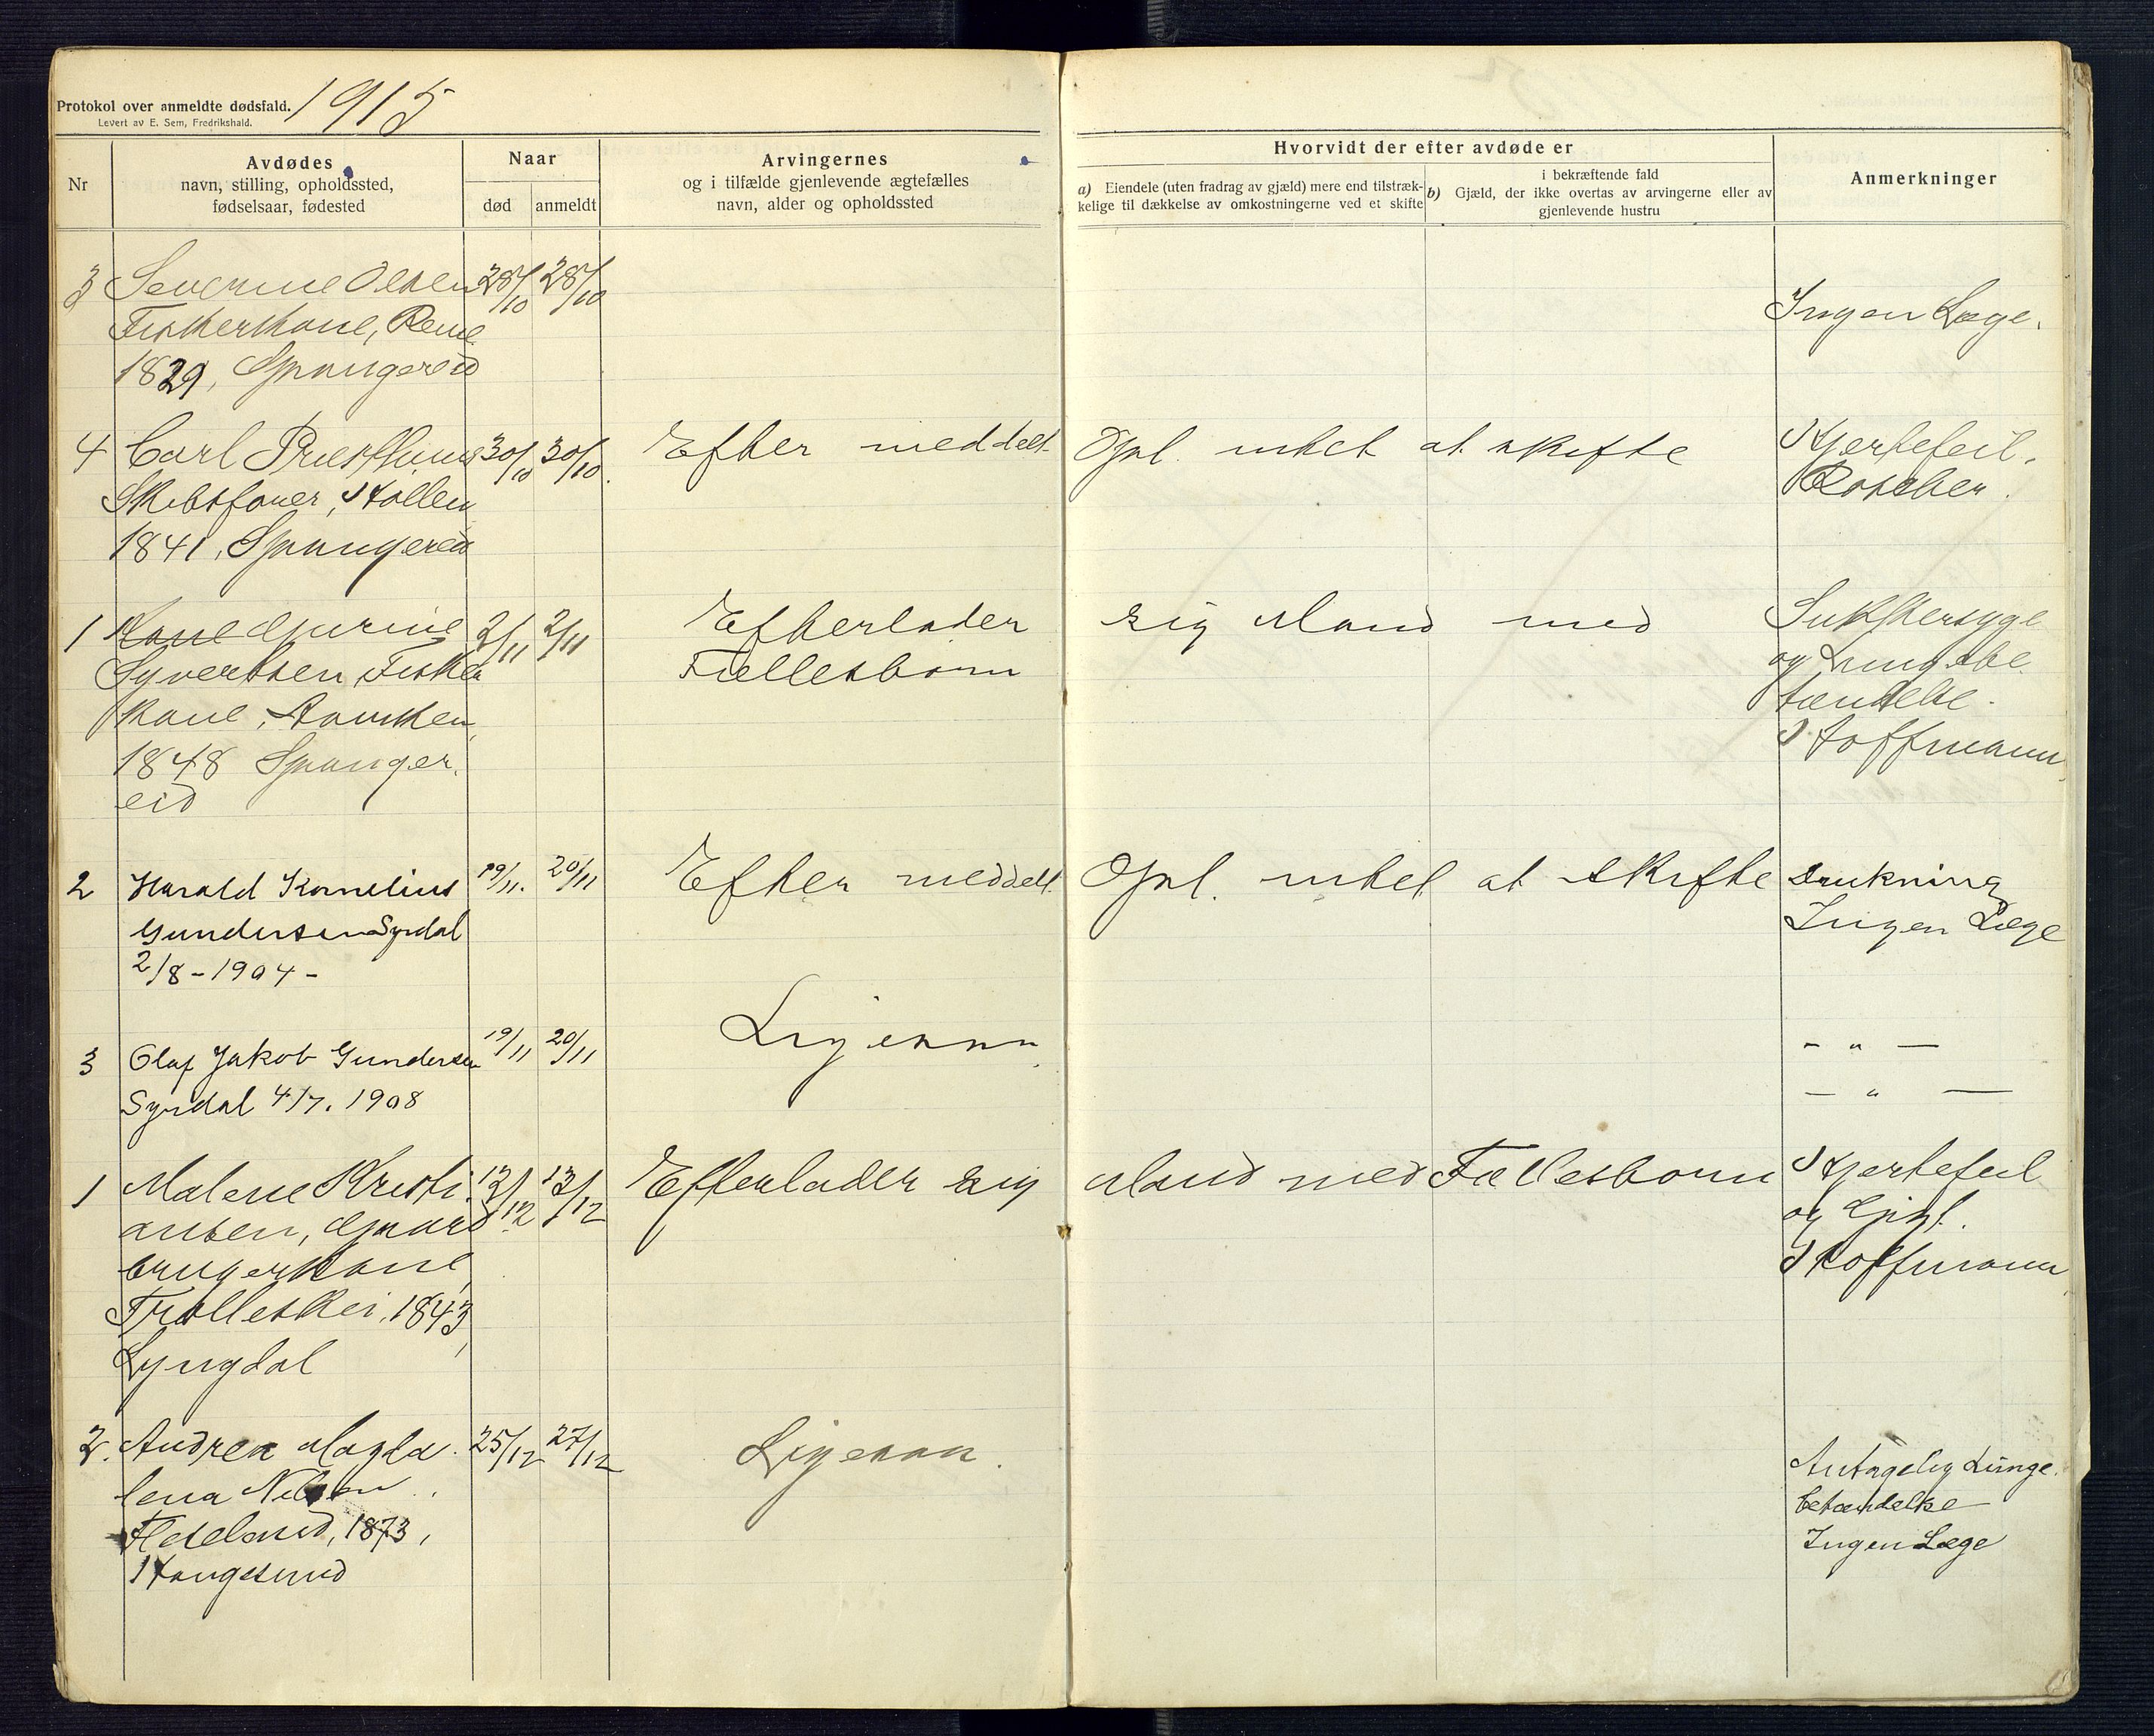 Protokol over anmeldte dødsfald. 1915
Levert av E. Sem, Fredrikshald.
Nr
Avdødes
navn, stilling, opholdssted,
fødselsaar, fødested
Naar
død
anmeldt
Arvingernes
og i tilfælde gjenlevende ægtefælles
navn, alder og opholdssted
Hvorvidt der efter avdøde er
a) Eiendele (uten fradrag av gjæld) mere end tilstræk-
kelige til dækkelse av omkostningerne ved et skifte
i bekræftende fald
b) Gjæld, der ikke overtas av arvingerne eller av
gjenlevende hustru
Anmerkninger
3 Severine Olsen 28/10 28/10
Fiskerkone, Rene
1829, Spangereid
Ingen Læge.
4 Carl 30/10 30/10. Efter meddelt Opl. intet at skifte Hjertefeil.
Skibsfører, Hollen
1841, Spangereid
1 Kone Gurine 2/11 2/11 Efterlader sig Mand med Sukkersyge
Syvertsen, Fisker
kone,
1848 Spanger.
eid
Fællesbørn
og Lungebe
tændelse.
Hoffmann
2 Harald Kornelius 19/11. 20/11 Efter meddelt Opl. intet at skifte Drukning
Gundersen Syrdal
2/8 - 1904 -
Ingen Læge
3 Olaf Jakob Gundersen 19/11 20/11 Ligesaa - " -
Syrdal 4/7. 1908
- " -
1 Malene Kristi 13/12 13/12 Efterlader sig Mand med Fællesbørn Hjertefeil
ansen, Gaard
brugerkone,
Trølleskei, 1843,
Lyngdal
og
Hoffmann
2. Andrea Magda 25/12 27/12 Ligesaa.
lena Nilsen
1873,
Haugesund
Antagelig Lunge
betændelse
Ingen Læge